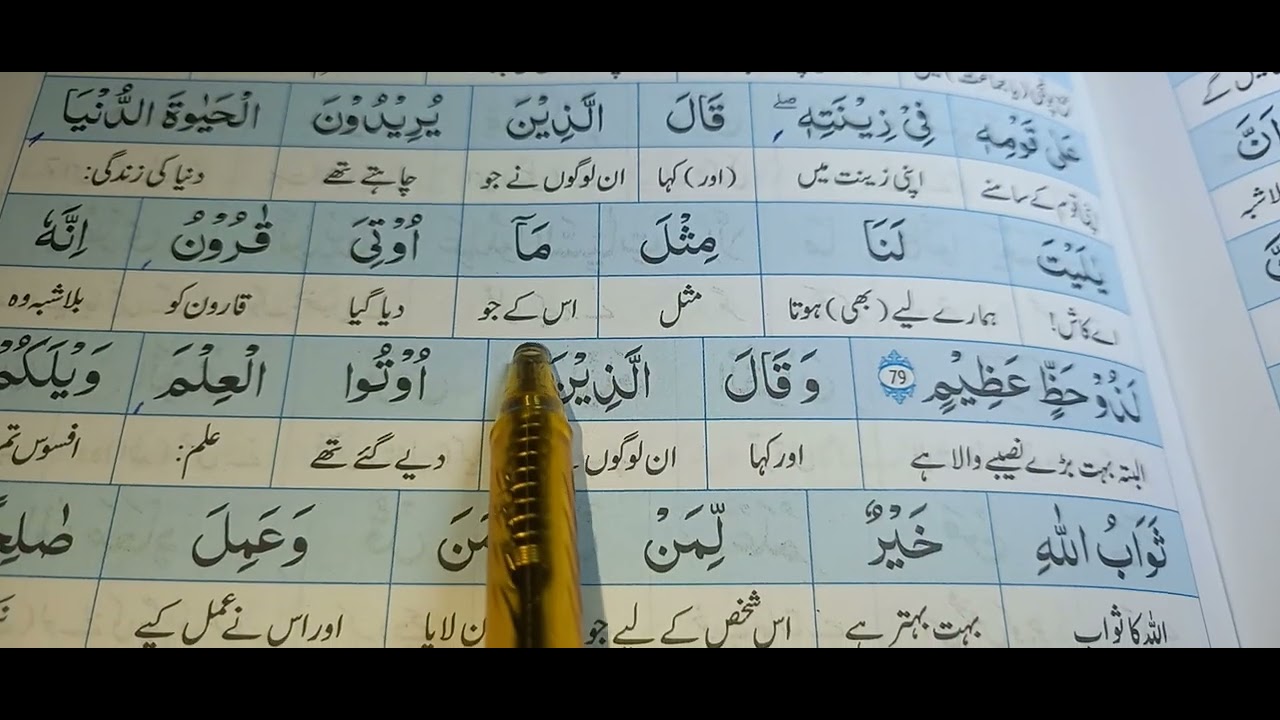 عَلٰى قَوْمِهٖ فِیْ زِیْنَتِهٖ ؕ قَالَ الَّذِیْنَ یُرِیْدُوْنَ الْحَیٰوةَ الدُّنْیَا
اپنی قوم کے سامنے اپنی زینت میں (اور) کہا ان لوگوں نے جو چاہتے تھے دنیا کی زندگی:
یٰلَیْتَ لَنَا مِثْلَ مَاۤ اُوْتِیَ قَارُوْنُ اِنَّهٗ
اے کاش! ہمارے لیے (بھی) ہوتا مثل اس کے جو دیا گیا قارون کو بلاشبہ وہ
لَذُوْ حَظٍّ عَظِیْمٍ 79 وَ قَالَ الَّذِیْنَ اُوْتُوا الْعِلْمَ وَیْلَكُمْ
البتہ بہت بڑے نصیبے والا ہے اور کہا ان لوگوں دیے گئے تھے علم: افسوس تم
ثَوَابُ اللّٰهِ خَیْرٌ لِّمَنْ وَعَمِلَ
اللہ کا ثواب بہت بہتر ہے اس شخص کے لیے جو لایا اور اس نے عمل کیے